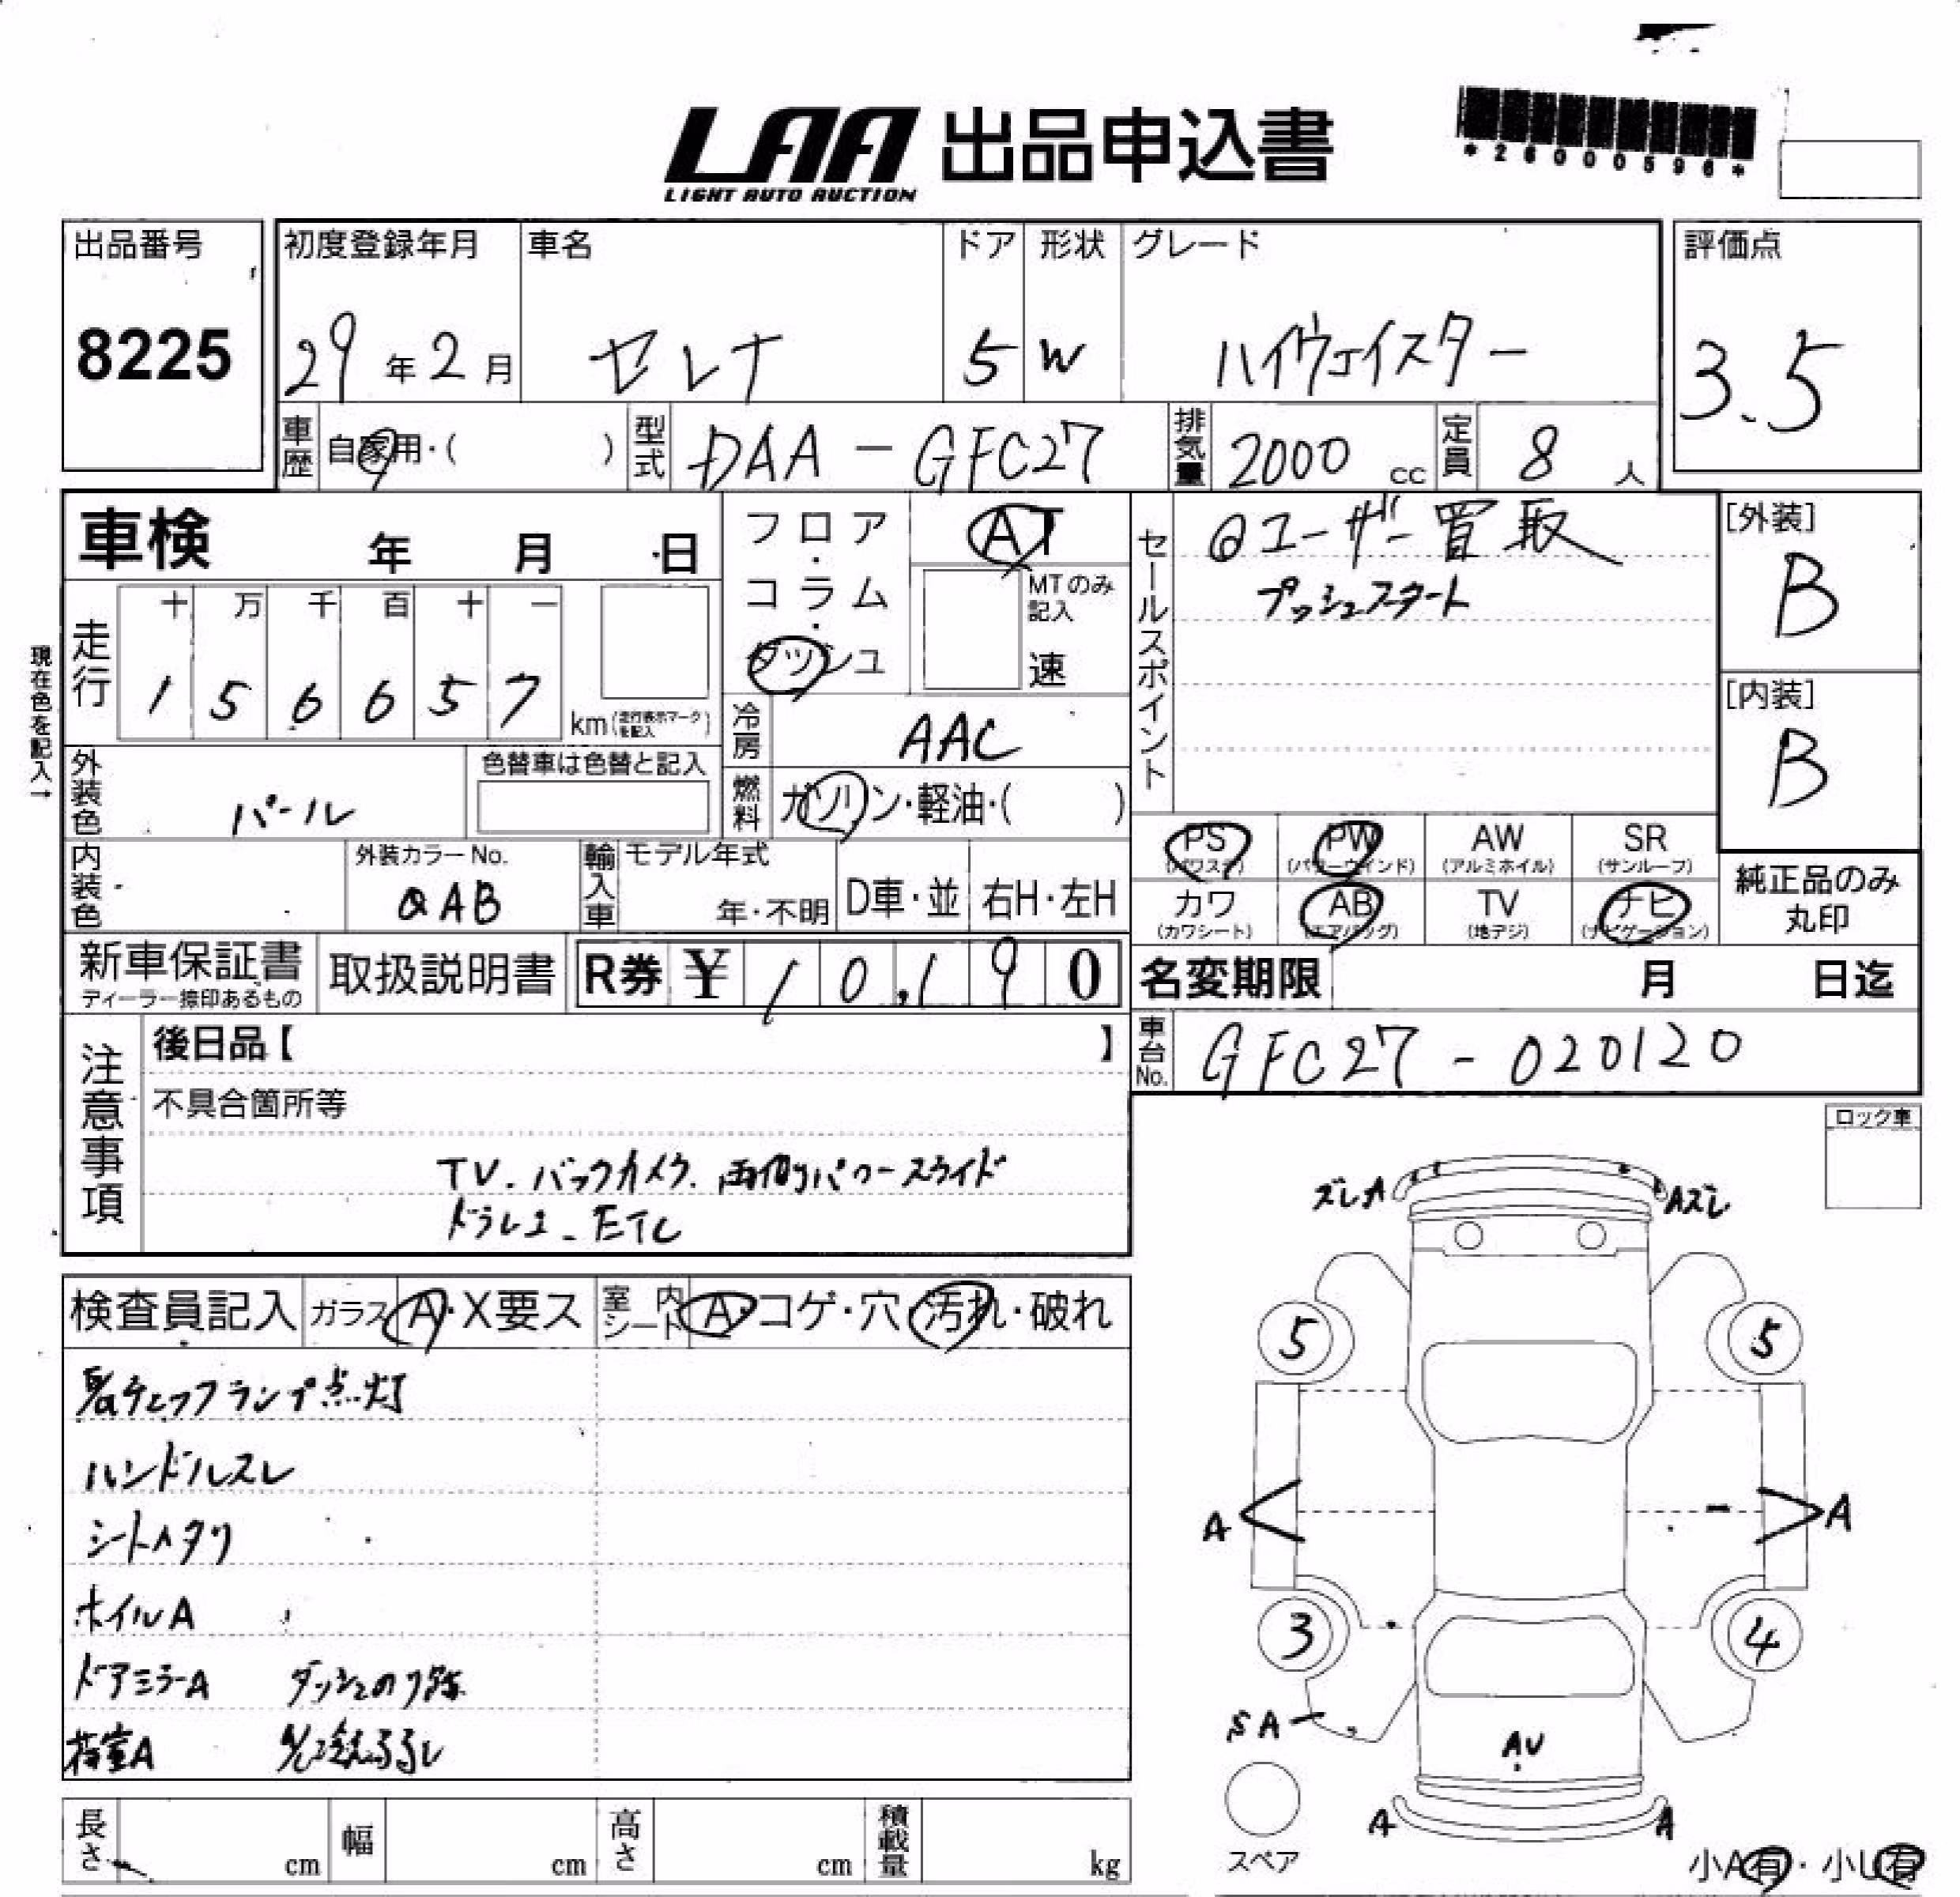 LAA 出品申込書
LIGHT AUTO AUCTION
*26000596*
出品番号
8225
初度登録年月
29年2月
車名
セレナ
ドア
5
形状
W
グレード
ハイウェイスター
評価点
3.5
車歴
自家用・( )
型式
DAA-GFC27
排気量
2000 cc
定員
8 人
車検 年 月 日
現在色を記入→
走行
十 万 千 百 十 一
1 5 6 6 5 7
km(走行表示マークを記入)
フロア・コラム・ダッシュ
AT
MTのみ記入
速
冷房
AAC
燃料
ガソリン・軽油・( )
外装色
パール
色替車は色替と記入
内装色
外装カラーNo.
QAB
輸入車
モデル年式
年・不明
D車・並
右H・左H
セールスポイント
◎ユーザー買取
プッシュスタート
[外装]
B
[内装]
B
PS (パワステ)
PW (パワーウィンド)
AW (アルミホイル)
SR (サンルーフ)
カワ (カワシート)
AB (エアバッグ)
TV (地デジ)
ナビ (ナビゲーション)
純正品のみ
丸印
新車保証書
ディーラー捺印あるもの
取扱説明書
R券 ¥ 10,190
名変期限 月 日迄
車台No.
GFC27-020120
注意事項
後日品【 】
不具合箇所等
TV.バックカメラ.両側パワースライド
ドラレコ-ETC
ロック車
検査員記入
ガラス A・X要ス
室内シート A・コゲ・穴・汚れ・破れ
チェックランプ点灯
ハンドルスレ
シートヘタリ
ホイルA
ドアミラーA ダッシュのり跡
ズレA
Aズレ
5
5
A
A
3
4
SA
AU
A
A
スペア
小A有・小U有
長さ cm
幅 cm
高さ cm
積載量 kg